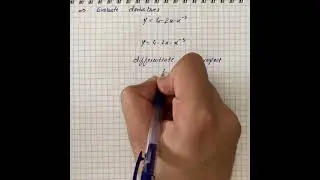 ⇒ Evaluate derivatives
y = 4-2x-x⁻³
y = 4-2x-x⁻³
differentiate